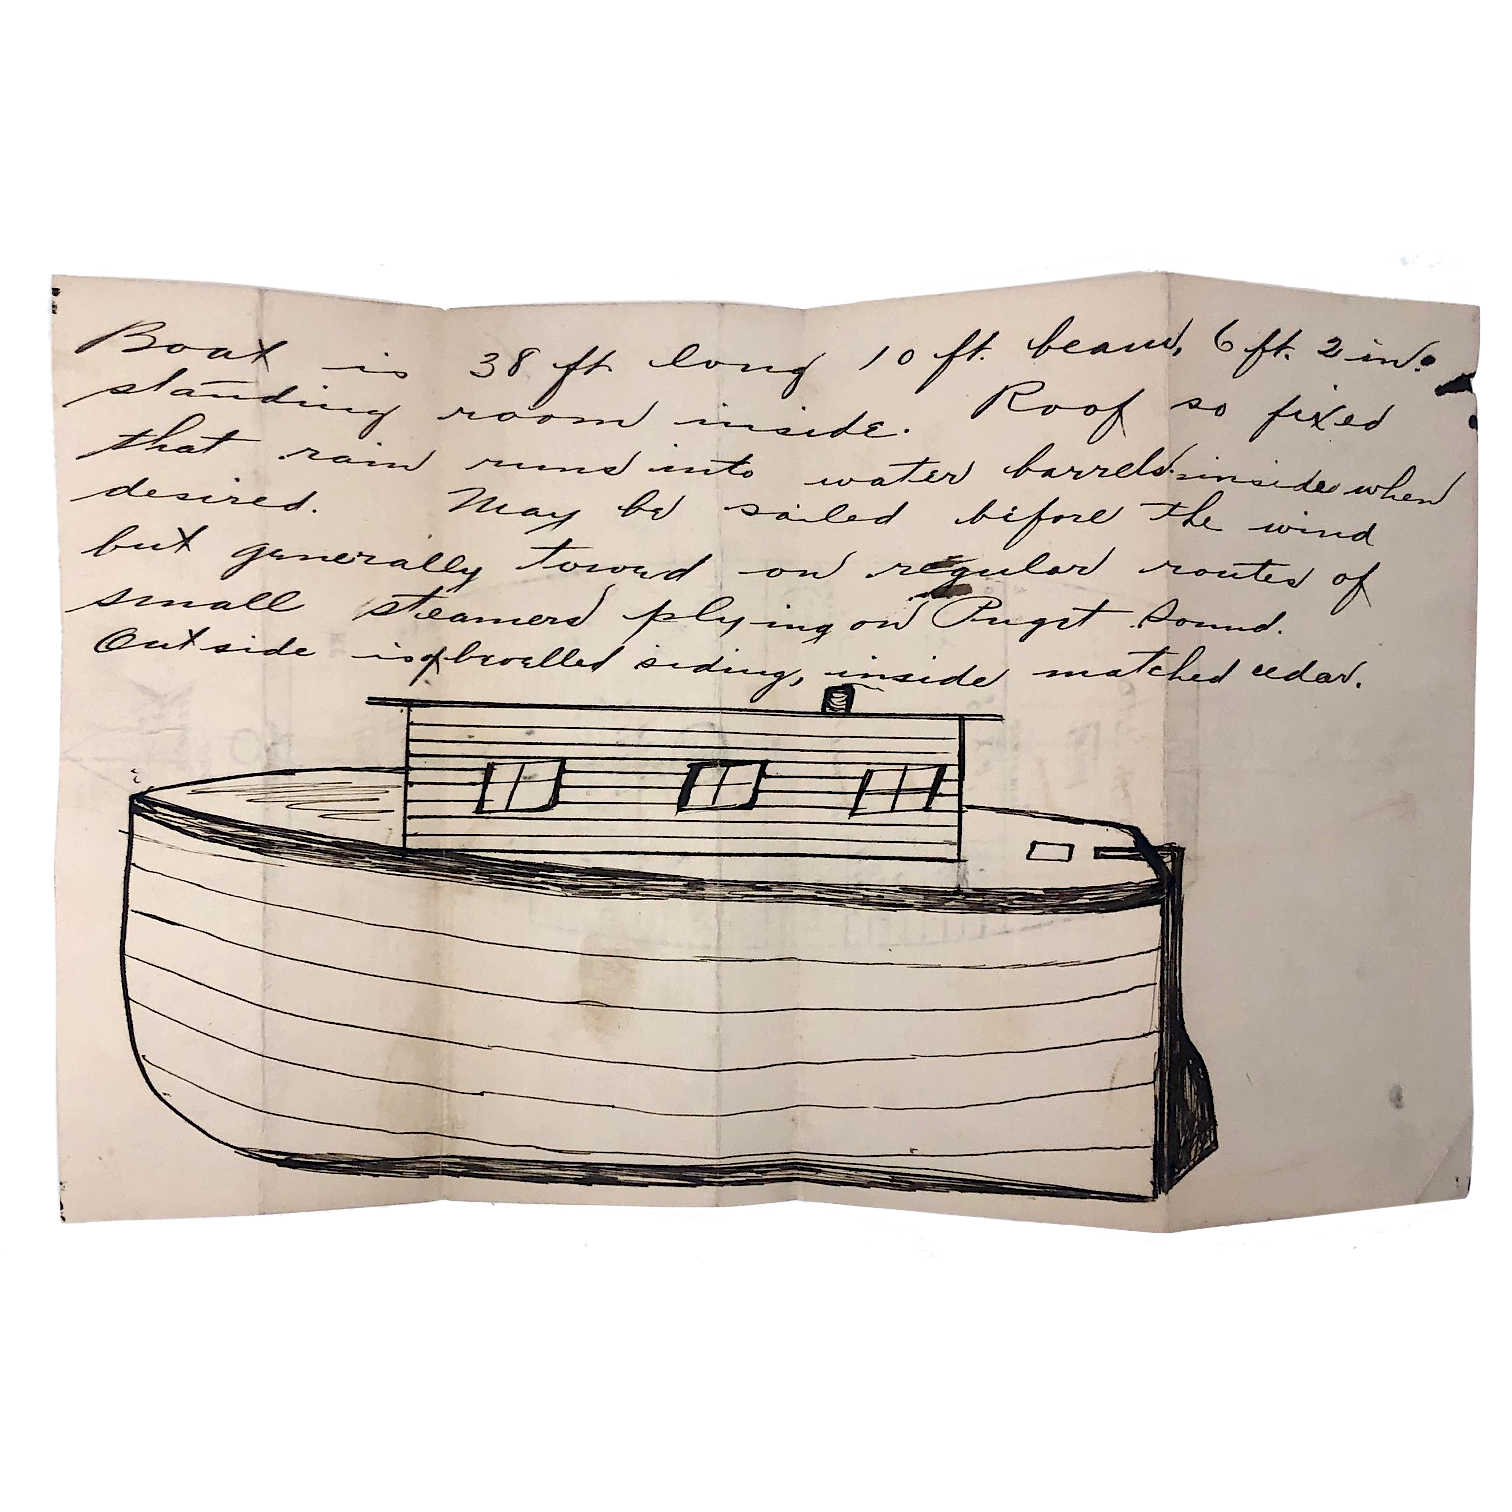 Boat is 38 ft long 10 ft. beam, 6 ft. 2 in.
standing room inside. Roof so fixed
that rain runs into water barrels inside when
desired. May be sailed before the wind
but generally towed on regular routes of
small steamers plying on Puget Sound.
Outside is of siding, inside matched cedar.